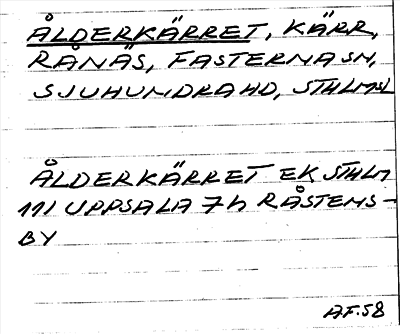 ÅLDERKÄRRET, KÄRR,
RÅNÄS, FASTERNA SN,
SJUHUNDRA HD, STHLMSL
ÅLDERKÄRRET EK STHLM
111 UPPSALA 7h RÅSTENS-
BY
AF.58